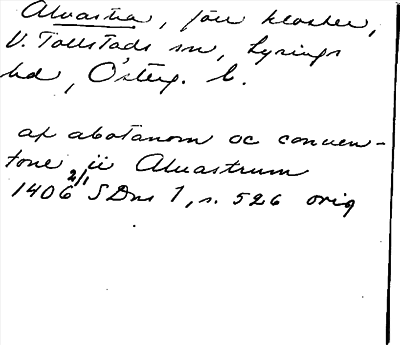 Alvastra, förr kloster,
V. Tollstads sn, Lysings
hd, Österg. l.
af abotanom oc conuen-
tone ii Aluastrum
1406 2/1 SDns 1, s. 526 orig